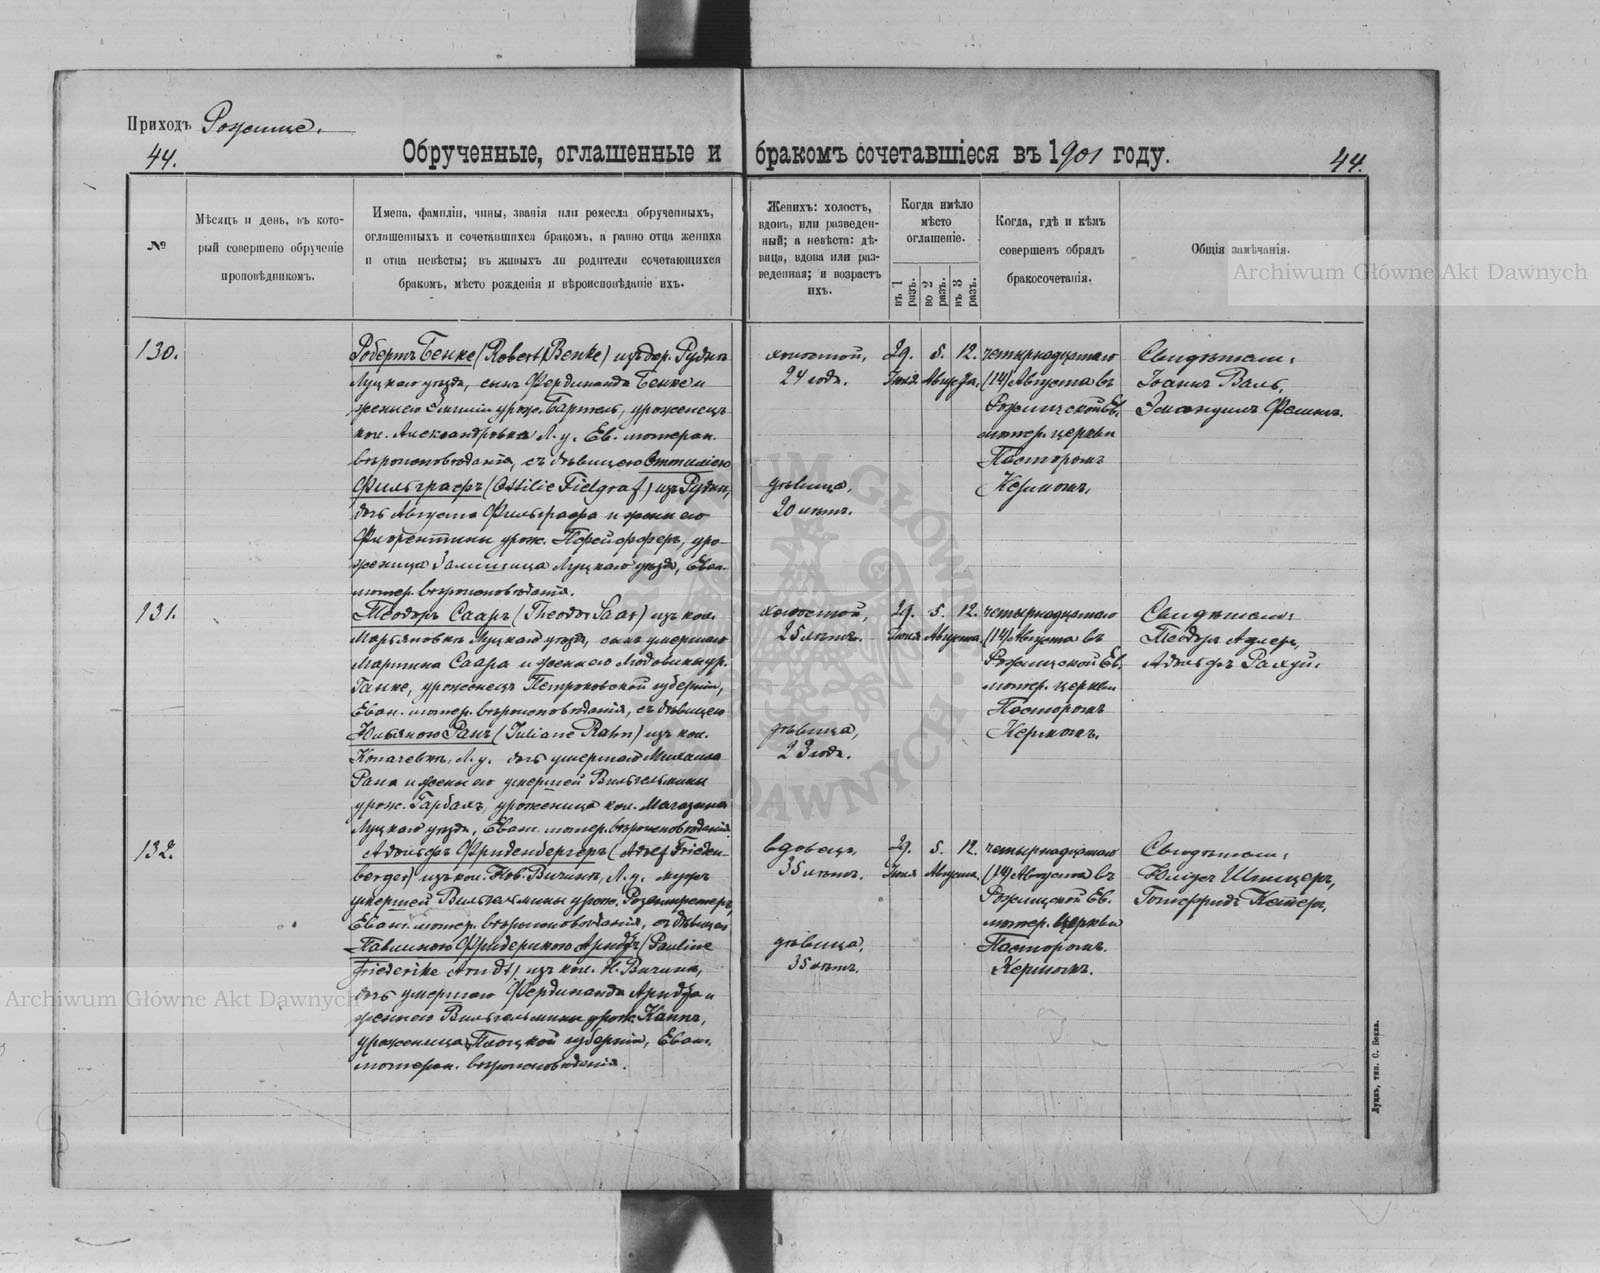 Приходъ Рожище.
44.
Обрученные, оглашенные и бракомъ сочетавшіеся въ 1901 году.
44.
№
Мѣсяцъ и день, въ кото-
рый совершено обрученіе
проповѣдникомъ.
Имена, фамиліи, чины, званія или ремесла обрученныхъ,
оглашенныхъ и сочетавшихся бракомъ, а равно отца жениха
и отца невѣсты; въ живыхъ ли родители сочетающихся
бракомъ, мѣсто рожденія и вѣроисповѣданіе ихъ.
Женихъ: холостъ,
вдовъ, или разведен-
ный; а невѣста: дѣ-
вица, вдова или раз-
веденная; и возрастъ
ихъ.
Когда имѣло
мѣсто
оглашеніе.
въ 1
разъ.
во 2
разъ.
въ 3
разъ.
Когда, гдѣ и кѣмъ
совершенъ обрядъ
бракосочетанія.
Общія замѣчанія.
Archiwum Główne Akt Dawnych
130.
Робертъ Бенке (Robert Benke) изъ дер. Рудни
Луцкаго уѣзда, сынъ Фердинанда Бенке и
жены его Эмиліи урож. Бартель, уроженецъ
кол. Александровка Л. у. Ев. лютеран.
вѣроисповѣданія, съ дѣвицею Оттиліею
Фильграфъ (Ottilie Fielgraf) изъ Рудни,
дочь Августа Фильграфа и жены его
Флорентины урож. Пфейфферъ, уро-
женица Луцкаго уѣзда, Еван.
лютер. вѣроисповѣданія.
холостой,
24 года.
дѣвица,
20 лѣтъ.
29. 5. 12.
Іюля Августа.
четырнадцатаго
(14) Августа въ
Рожищской Ев.
лютер. церкви
Пасторомъ
Керномъ.
Свидѣтели:
Іоаннъ Валь,
Эмануилъ
131.
Теодоръ Сааръ (Theodor Saar) изъ кол.
Марьяновки Луцкаго уѣзда, сынъ умершаго
Мартина Саара и жены его Людовики ур.
Ганке, уроженецъ Петроковской губерніи,
Еван. лютер. вѣроисповѣданія, съ дѣвицею
Юльяною Ранъ (Juliane Rahn) изъ кол.
Копачевки, Л. у. дочь умершаго Михаила
Рана и жены его умершей Вильгельмины
урож. Гарбахъ, уроженица кол.
Луцкаго уѣзда, Еван. лютер. вѣроисповѣданія.
холостой,
25 лѣтъ.
дѣвица,
23 года.
29. 5. 12.
Іюля Августа.
четырнадцатаго
(14) Августа въ
Рожищской Ев.
лютер. церкви
Пасторомъ
Керномъ.
Свидѣтели:
Теодоръ Адлеръ,
Адольфъ
132.
Адольфъ Фриденбергеръ (Adolf Frieden-
berger) изъ кол. Нов. Вичинъ, Л. у. мужъ
умершей Вильгельмины урож.
Еван. лютер. вѣроисповѣданія, съ дѣвицею
Павлиною Фридерикою Арндтъ (Pauline
Friederike Arndt) изъ кол. Н. Вичинъ,
дочь умершаго Фердинанда Арндта и
жены его Вильгельмины урож. Каннъ,
уроженица Плоцкой губерніи, Еван.
лютеран. вѣроисповѣданія.
вдовецъ,
35 лѣтъ.
дѣвица,
35 лѣтъ.
29. 5. 12.
Іюля Августа.
четырнадцатаго
(14) Августа въ
Рожищской Ев.
лютер. церкви
Пасторомъ
Керномъ.
Свидѣтели:
Юліусъ
Готфридъ
Archiwum Główne Akt Dawnych